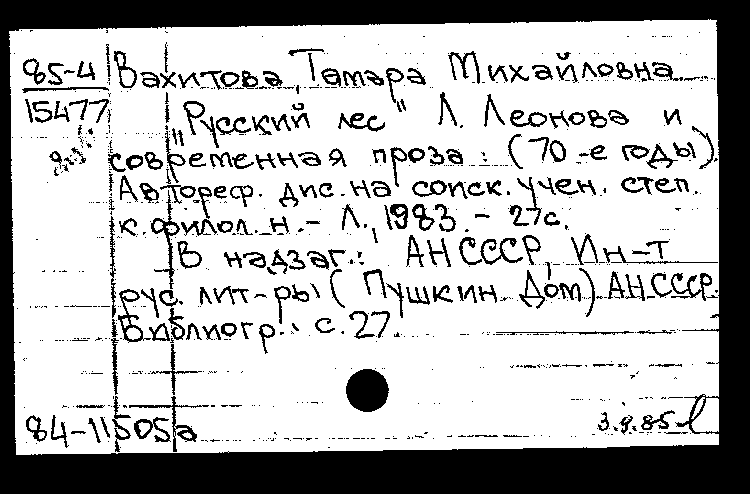 85-4 Вахитова, Тамара Михайловна
15477 „Русский лес" Л. Леонова и
современная проза : (70-е годы).
Автореф. дис. на соиск. учен. степ.
к. филол. н. – Л., 1983. – 27с.
В надзаг.: АН СССР, Ин-т
рус. лит-ры (Пушкин. Дом) АН СССР.
Библиогр.: с. 27.
84-11505а 3.9.85